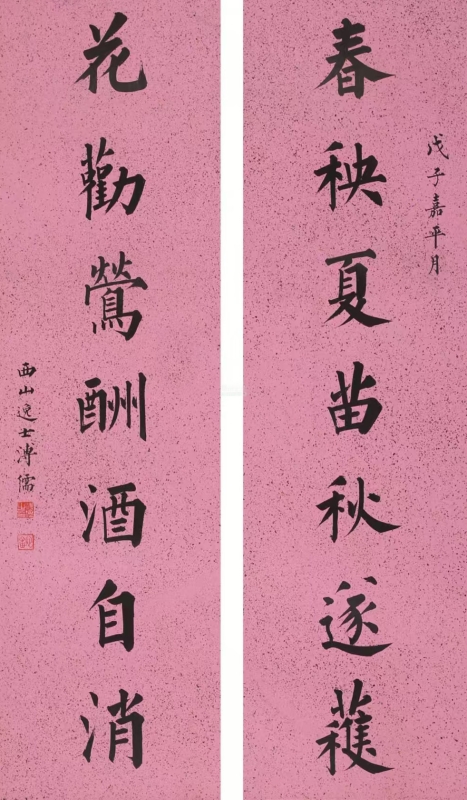 戊子嘉平月
春秧夏苗秋遂蕿
花勸鶯酬酒自消
西山逸士溥儒